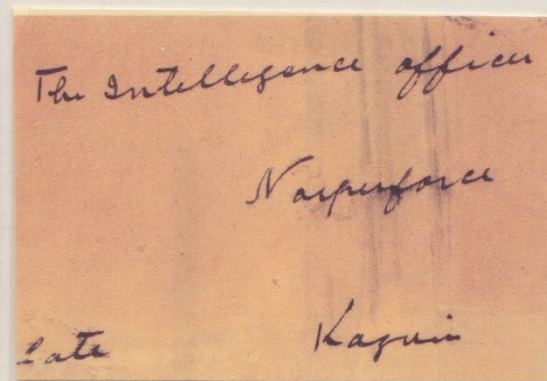 The Intelligence officer
Norperforce
Kazvin
Late